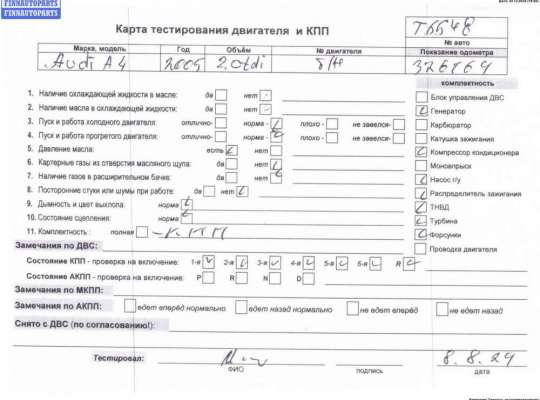 FINNAUTOPARTS
FINNAUTOPARTS
Карта тестирования двигателя и КПП
T5548
№ авто
Марка, модель Год Объём № двигателя Показание одометра
Audi A4 2005 2.0tdi б/н 326764
комплектность
1. Наличие охлаждающей жидкости в масле: да нет
Блок управления ДВС
2. Наличие масла в охлаждающей жидкости: да нет
Генератор
3. Пуск и работа холодного двигателя: отлично- норма - плохо - не завелся-
Карбюратор
4. Пуск и работа прогретого двигателя: отлично- норма - плохо - не завелся-
Катушка зажигания
5. Давление масла: есть нет
Компрессор кондиционера
6. Картерные газы из отверстия масляного щупа: да нет
Моновпрыск
7. Наличие газов в расширительном бачке: да нет
Насос г/у
8. Посторонние стуки или шумы при работе: да нет
Распределитель зажигания
9. Дымность и цвет выхлопа: норма
ТНВД
10. Состояние сцепления: норма
Турбина
11. Комплектность : полная -КПП
Форсунки
Замечания по ДВС:
Проводка двигателя
Состояние КПП - проверка на включение: 1-я 2-я 3-я 4-я 5-я 6-я R
Состояние АКПП - проверка на включение: P R N D
Замечания по МКПП:
Замечания по АКПП: едет вперёд нормально едет назад нормально не едет вперёд не едет назад
Снято с ДВС (по согласованию!):
Тестировал: 8.8.24
ФИО подпись дата